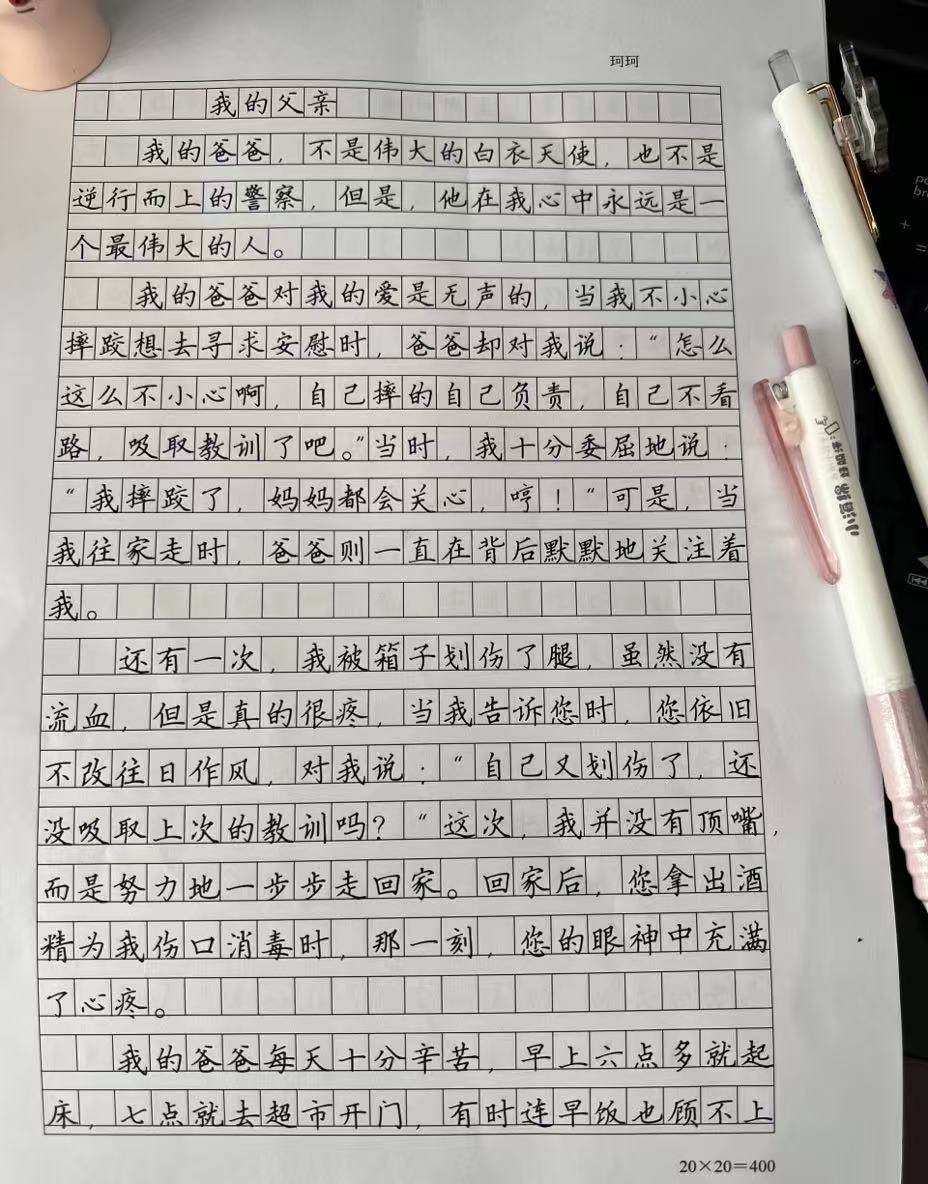 珂珂
我的父亲
我的爸爸，不是伟大的白衣天使，也不是
逆行而上的警察，但是，他在我心中永远是一
个最伟大的人。
我的爸爸对我的爱是无声的，当我不小心
摔跤想去寻求安慰时，爸爸却对我说：“怎么
这么不小心啊，自己摔的自己负责，自己不看
路，吸取教训了吧。”当时，我十分委屈地说：
“我摔跤了，妈妈都会关心，哼！”可是，当
我往家走时，爸爸则一直在背后默默地关注着
我。
还有一次，我被箱子划伤了腿，虽然没有
流血，但是真的很疼，当我告诉您时，您依旧
不改往日作风，对我说：“自己又划伤了，还
没吸取上次的教训吗？“这次，我并没有顶嘴，
而是努力地一步步走回家。回家后，您拿出酒
精为我伤口消毒时，那一刻，您的眼神中充满
了心疼。
我的爸爸每天十分辛苦，早上六点多就起
床，七点就去超市开门，有时连早饭也顾不上
20×20=400
小海绵